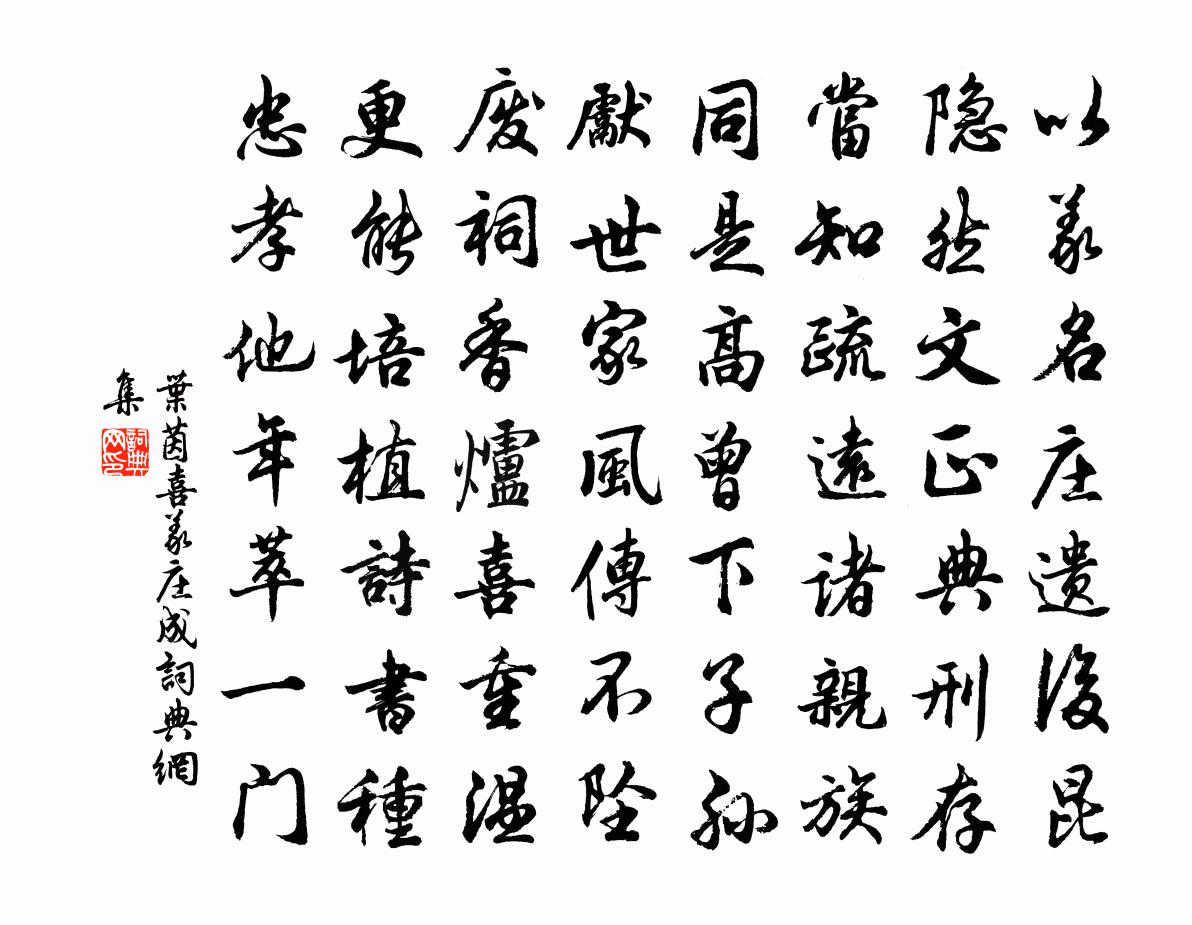 以義名庄遗後昆
隐然文正典刑存
當知疏遠诸親族
同是高曾下子孙
獻世家風傳不坠
废祠香爐喜重温
更能培植詩書種
忠孝他年萃一门
葉茵喜義庄成詞典網
集
詞典网印